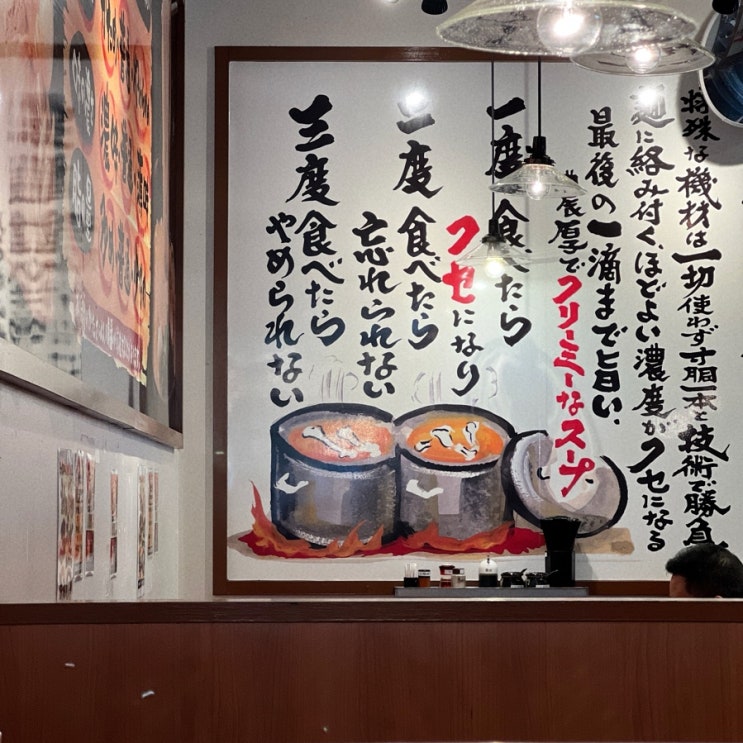 特殊な機材は一切使わず寸胴一本と技術で勝負
麺に絡み付く、ほどよい濃度がクセになる
最後の一滴まで旨い、
濃厚でクリーミーなスープ
一度食べたら
クセになり
二度食べたら
忘れられない
三度食べたら
やめられない